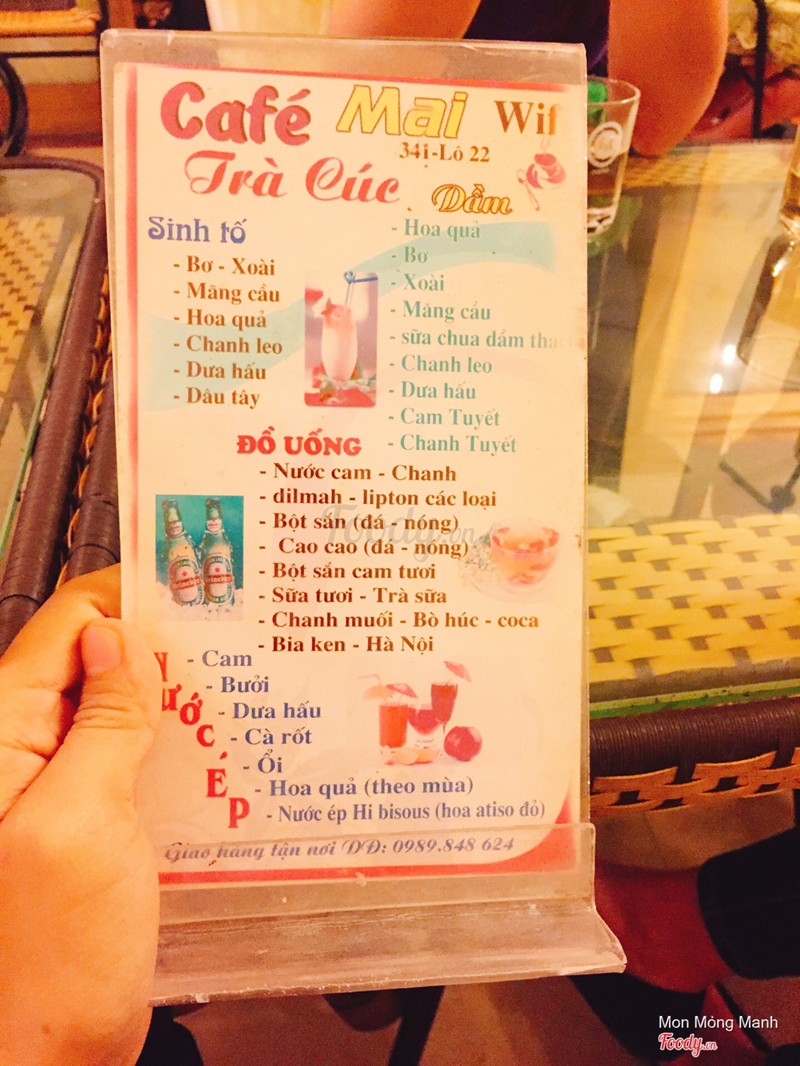 Café Mai Wif
341-Lô 22
Trà Cúc
Sinh tố
- Bơ - Xoài
- Mãng cầu
- Hoa quả
- Chanh leo
- Dưa hấu
- Dâu tây
Dầm
- Hoa quả
- Bơ
- Xoài
- Mãng cầu
- sữa chua dầm
- Chanh leo
- Dưa hấu
- Cam Tuyết
- Chanh Tuyết
ĐỒ UỐNG
- Nước cam - Chanh
- dilmah - lipton các loại
- Bột sắn (đá - nóng)
- Cao cao (đá - nóng)
- Bột sắn cam tươi
- Sữa tươi - Trà sữa
- Chanh muối - Bò húc - coca
- Bia ken - Hà Nội
Nước ÉP
- Cam
- Bưởi
- Dưa hấu
- Cà rốt
- Ổi
- Hoa quả (theo mùa)
- Nước ép Hi bisous (hoa atiso đỏ)
Giao hàng tận nơi DĐ: 0989.848 624
Foody.vn
Mon Mỏng Manh
Foody.vn